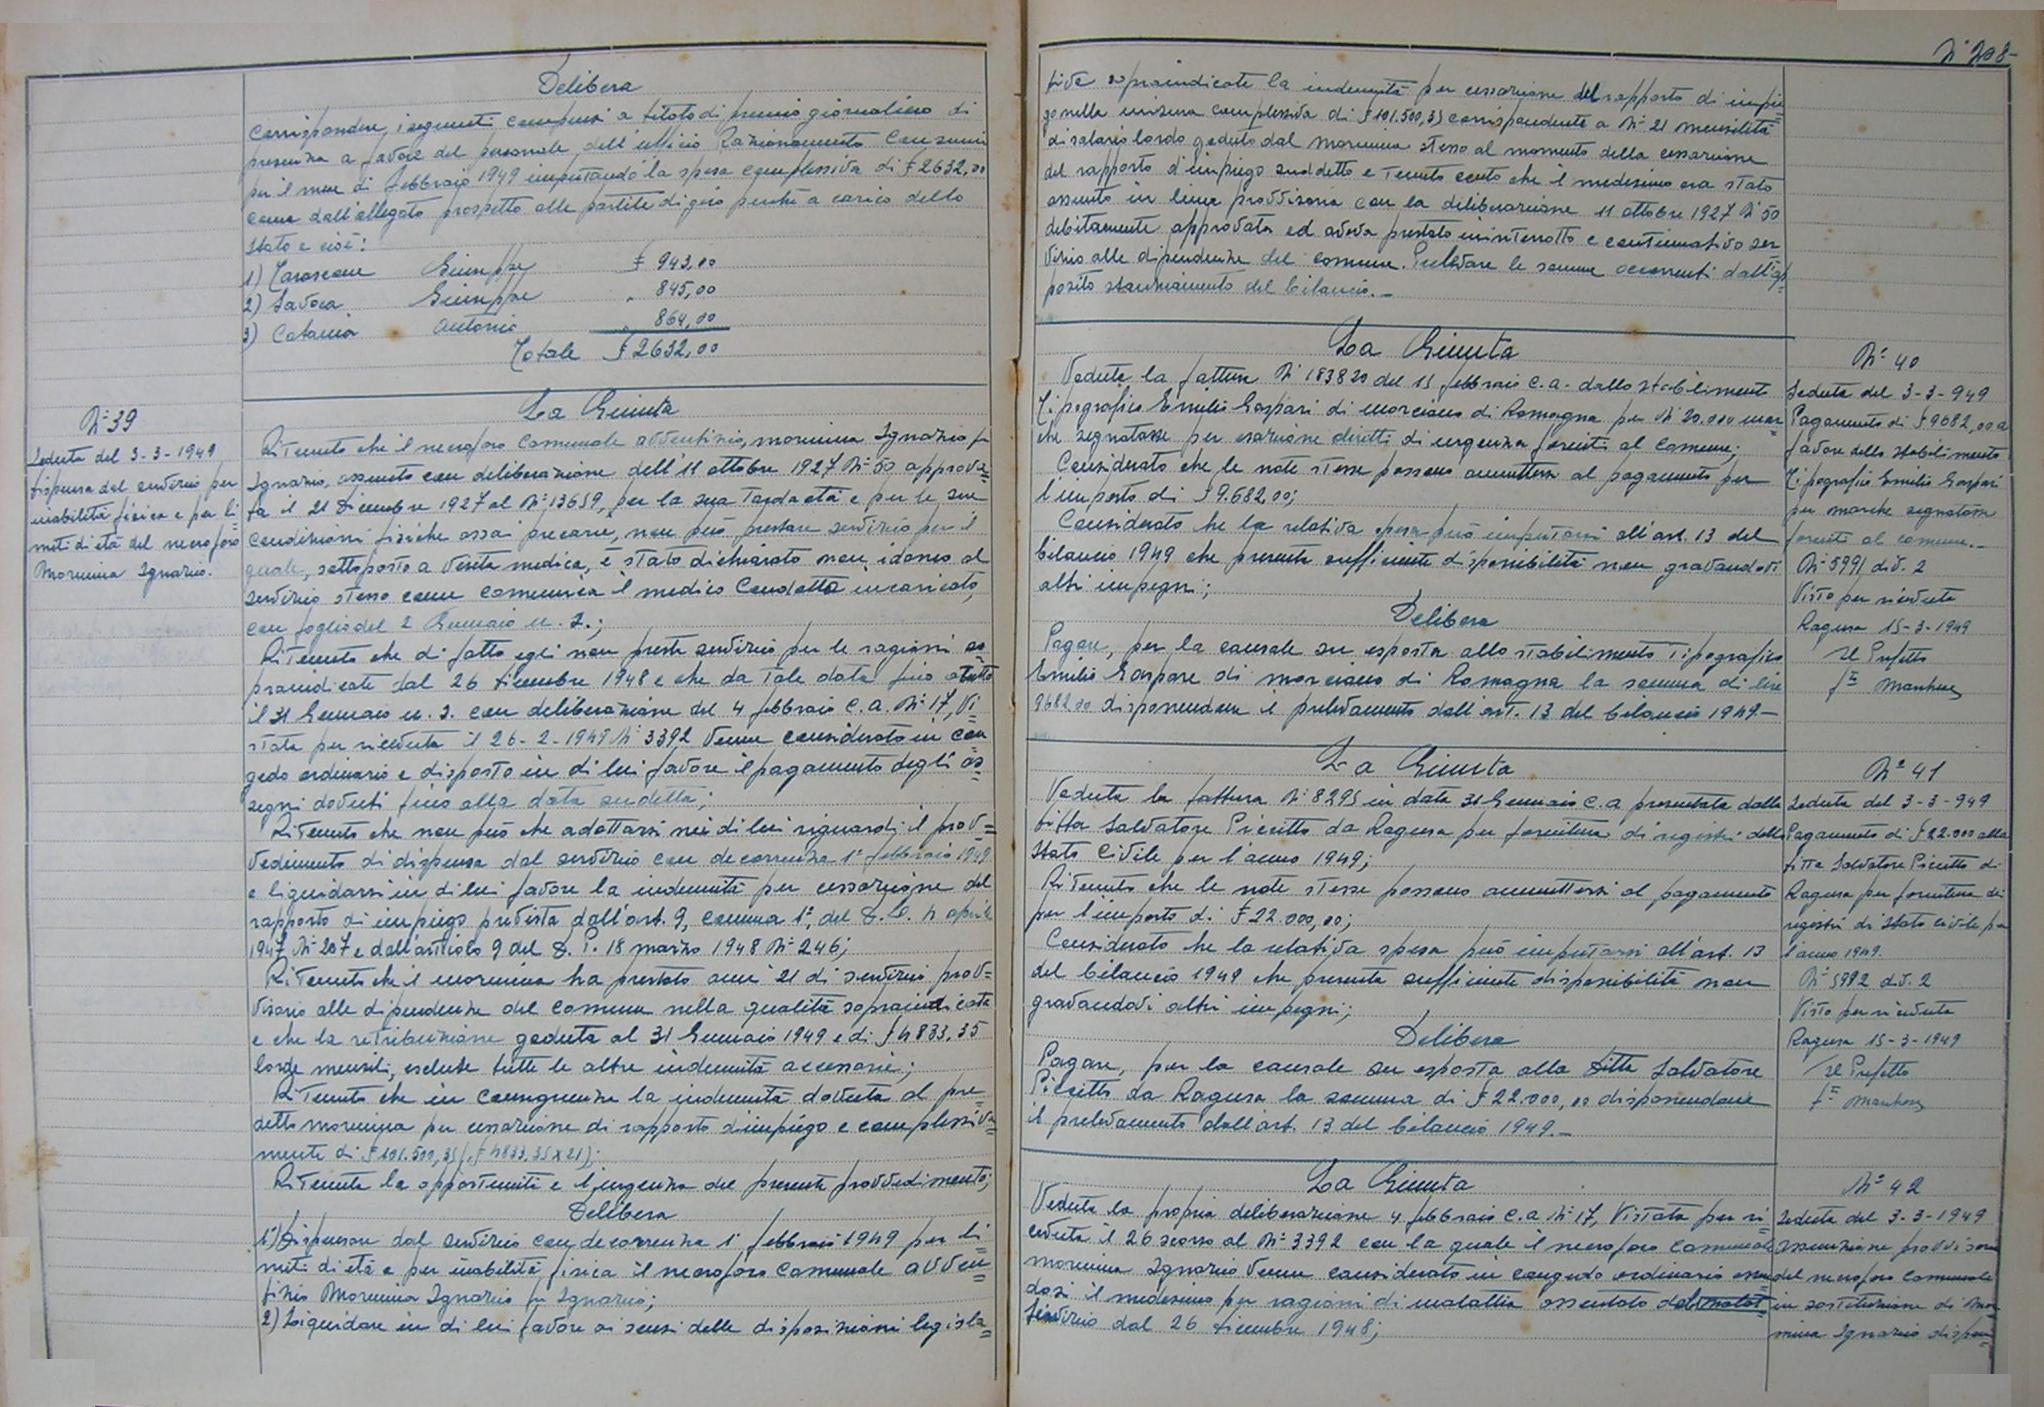 Delibera
Corrispondere, i seguenti compensi a titolo di premio giornaliero di
presenza a favore del personale dell'ufficio Razionamento Consumi
per il mese di febbraio 1949 imputando la spesa complessiva di £ 2632,00
come dall'allegato prospetto alle partite di giro perché a carico dello
Stato e cioè:
1) Tarascone Giuseppe £ 943,00
2) Savoca Giuseppe " 845,00
3) Catania Antonio " 864,00
Totale £ 2632,00
N° 39
Seduta del 3-3-1949
Dispensa dal servizio per
inabilità fisica e per li=
miti di età del necroforo
Mormina Ignazio.
La Giunta
Ritenuto che il necroforo comunale avventizio, Mormina Ignazio fu
Ignazio, assunto con deliberazione dell'11 ottobre 1927 N° 50 approva=
ta il 21 Dicembre 1927 al N° 13659, per la sua tarda età e per le sue
condizioni fisiche assai precarie, non può prestare servizio per il
quale, sottoposto a visita medica, è stato dichiarato non idoneo al
servizio stesso come comunica il medico Condotto incaricato,
con foglio del 2 Gennaio u. s.;
Ritenuto che di fatto egli non presta servizio per le ragioni so
praindicate dal 26 Dicembre 1948 e che da tale data fino a tutto
il 31 Gennaio u. s. con deliberazione del 4 febbraio c. a. N° 17, vi=
stata per ricevuta il 26-2-1949 N° 3392 venne considerato in con
gedo ordinario e disposto in di lui favore il pagamento degli as=
segni dovuti fino alla data sudetta;
Ritenuto che non può che adottarsi nei di lui riguardi il prov=
vedimento di dispensa dal servizio con decorrenza 1° febbraio 1949
e liquidarsi in di lui favore la indennità per cessazione del
rapporto di impiego prevista dall'art. 9, comma 1°, del D. L. 4 aprile
1947 N° 207 e dall'articolo 9 del D. P. 18 marzo 1948 N° 246;
Ritenuto che il Mormina ha prestato anni 21 di servizio prov=
visorio alle dipendenze del Comune nella qualità sopraindicata
e che la retribuzione goduta al 31 Gennaio 1949 è di £ 4833,35
lorde mensili, escluse tutte le altre indennità accessorie;
Ritenuto che in conseguenza la indennità dovuta al pre=
detto Mormina per cessazione di rapporto d'impiego è complessiva=
mente di £ 101.500,35 (£ 4833.35 x 21);
Ritenuta la opportunità e l'urgenza del presente provvedimento;
Delibera
1°) Dispensare dal servizio con decorrenza 1° febbraio 1949 per li=
miti di età e per inabilità fisica il necroforo Comunale avven=
tizio Mormina Ignazio fu Ignazio;
2) Liquidare in di lui favore ai sensi delle disposizioni legisla=
N° 208-
tive sopraindicate la indennità per cessazione del rapporto di impie
go nella misura complessiva di £ 101.500,35 corrispondente a N° 21 mensilità
di salario lordo goduto dal Mormina stesso al momento della cessazione
del rapporto d'impiego suddetto e tenuto conto che il medesimo era stato
assunto in linea provvisoria con la deliberazione 11 ottobre 1927 N° 50
debitamente approvata ed aveva prestato ininterrotto e continuativo ser
vizio alle dipendenze del Comune. Prelevare le somme occorrenti dall'ap
posito stanziamento del bilancio.-
La Giunta
Veduta la fattura N° 183820 del 15 febbraio c. a. dello Stabilimento
Tipografico Emilio Gaspari di Morciano di Romagna per N° 20.000 mar=
che segnatasse per esazione diritti di urgenza forniti al Comune;
Considerato che le note stesse possono ammettersi al pagamento per
l'importo di £ 9.682,00;
Considerato che la relativa spesa può imputarsi all'art. 13 del
bilancio 1949 che presenta sufficiente disponibilità non gravandovi
altri impegni;
Delibera
Pagare, per la causale su esposta allo stabilimento tipografico
Emilio Gaspare di Morciano di Romagna la somma di lire
9682.00 disponendone il prelevamento dall'art. 13 del bilancio 1949.-
N° 40
Seduta del 3-3-949
Pagamento di £ 9682,00 a
favore dello Stabilimento
Tipografico Emilio Gaspari
per marche segnatasse
fornite al comune.-
N° 5991 div. 2
Visto per ricevuta
Ragusa 15-3-1949
Il Prefetto
f°
La Giunta
Veduta la fattura N° 8295 in data 31 Gennaio c. a presentata dalla
Ditta Salvatore Piccitto da Ragusa per fornitura di registri dello
Stato Civile per l'anno 1949;
Ritenuto che le note stesse possono ammettersi al pagamento
per l'importo di £ 22.000,00;
Considerato che la relativa spesa può imputarsi all'art. 13
del bilancio 1949 che presenta sufficiente disponibilità non
gravandovi altri impegni;
Delibera
Pagare, per la causale su esposta alla Ditta Salvatore
Piccitto da Ragusa la somma di £ 22.000,00 disponendone
il prelevamento dall'art. 13 del bilancio 1949.-
N° 41
Seduta del 3-3-949
Pagamento di £ 22.000 alla
Ditta Salvatore Piccitto di
Ragusa per fornitura dei
registri di Stato Civile per
l'anno 1949.
N° 5992 div. 2
Visto per ricevuta
Ragusa 15-3-1949
Il Prefetto
f°
La Giunta
Veduta la propria deliberazione 4 febbraio c. a N° 17, vistata per ri=
cevuta il 26 scorso al N° 3392 con la quale il necroforo comunale
Mormina Ignazio venne considerato in congedo ordinario essen
dosi il medesimo per ragioni di malattia assentato dal
servizio dal 26 Dicembre 1948;
N° 42
Seduta del 3-3-1949
Assunzione provvisoria
del necroforo comunale
in sostituzione di Mor=
mina Ignazio dispen=